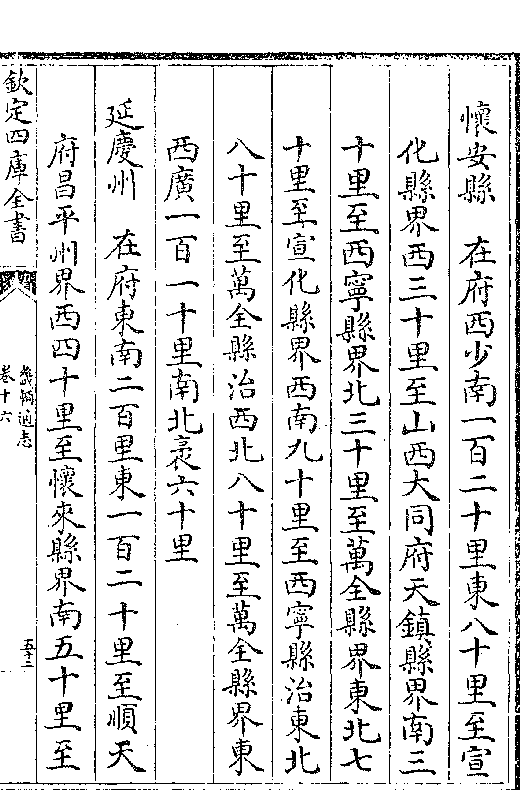 懷安縣　在府西少南一百二十里東八十里至宣
化縣界西三十里至山西大同府天鎮縣界南三
十里至西寧縣界北三十里至萬全縣界東北七
十里至宣化縣界西南九十里至西寧縣治東北
八十里至萬全縣治西北八十里至萬全縣界東
西廣一百一十里南北袤六十里
延慶州　在府東南二百里東一百二十里至順天
府昌平州界西四十里至懷來縣界南五十里至
欽定四庫全書
畿輔通志
卷十六
五十二